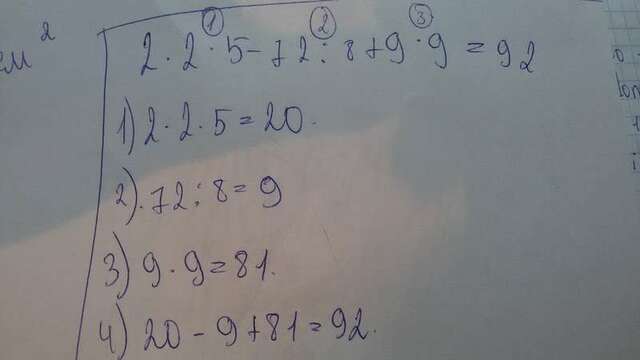 см 2
① ② ③
2 · 2 · 5 - 72 : 8 + 9 · 9 = 92
1) 2 · 2 · 5 = 20.
2) · 72 : 8 = 9
3) 9 · 9 = 81.
4) 20 - 9 + 81 = 92.